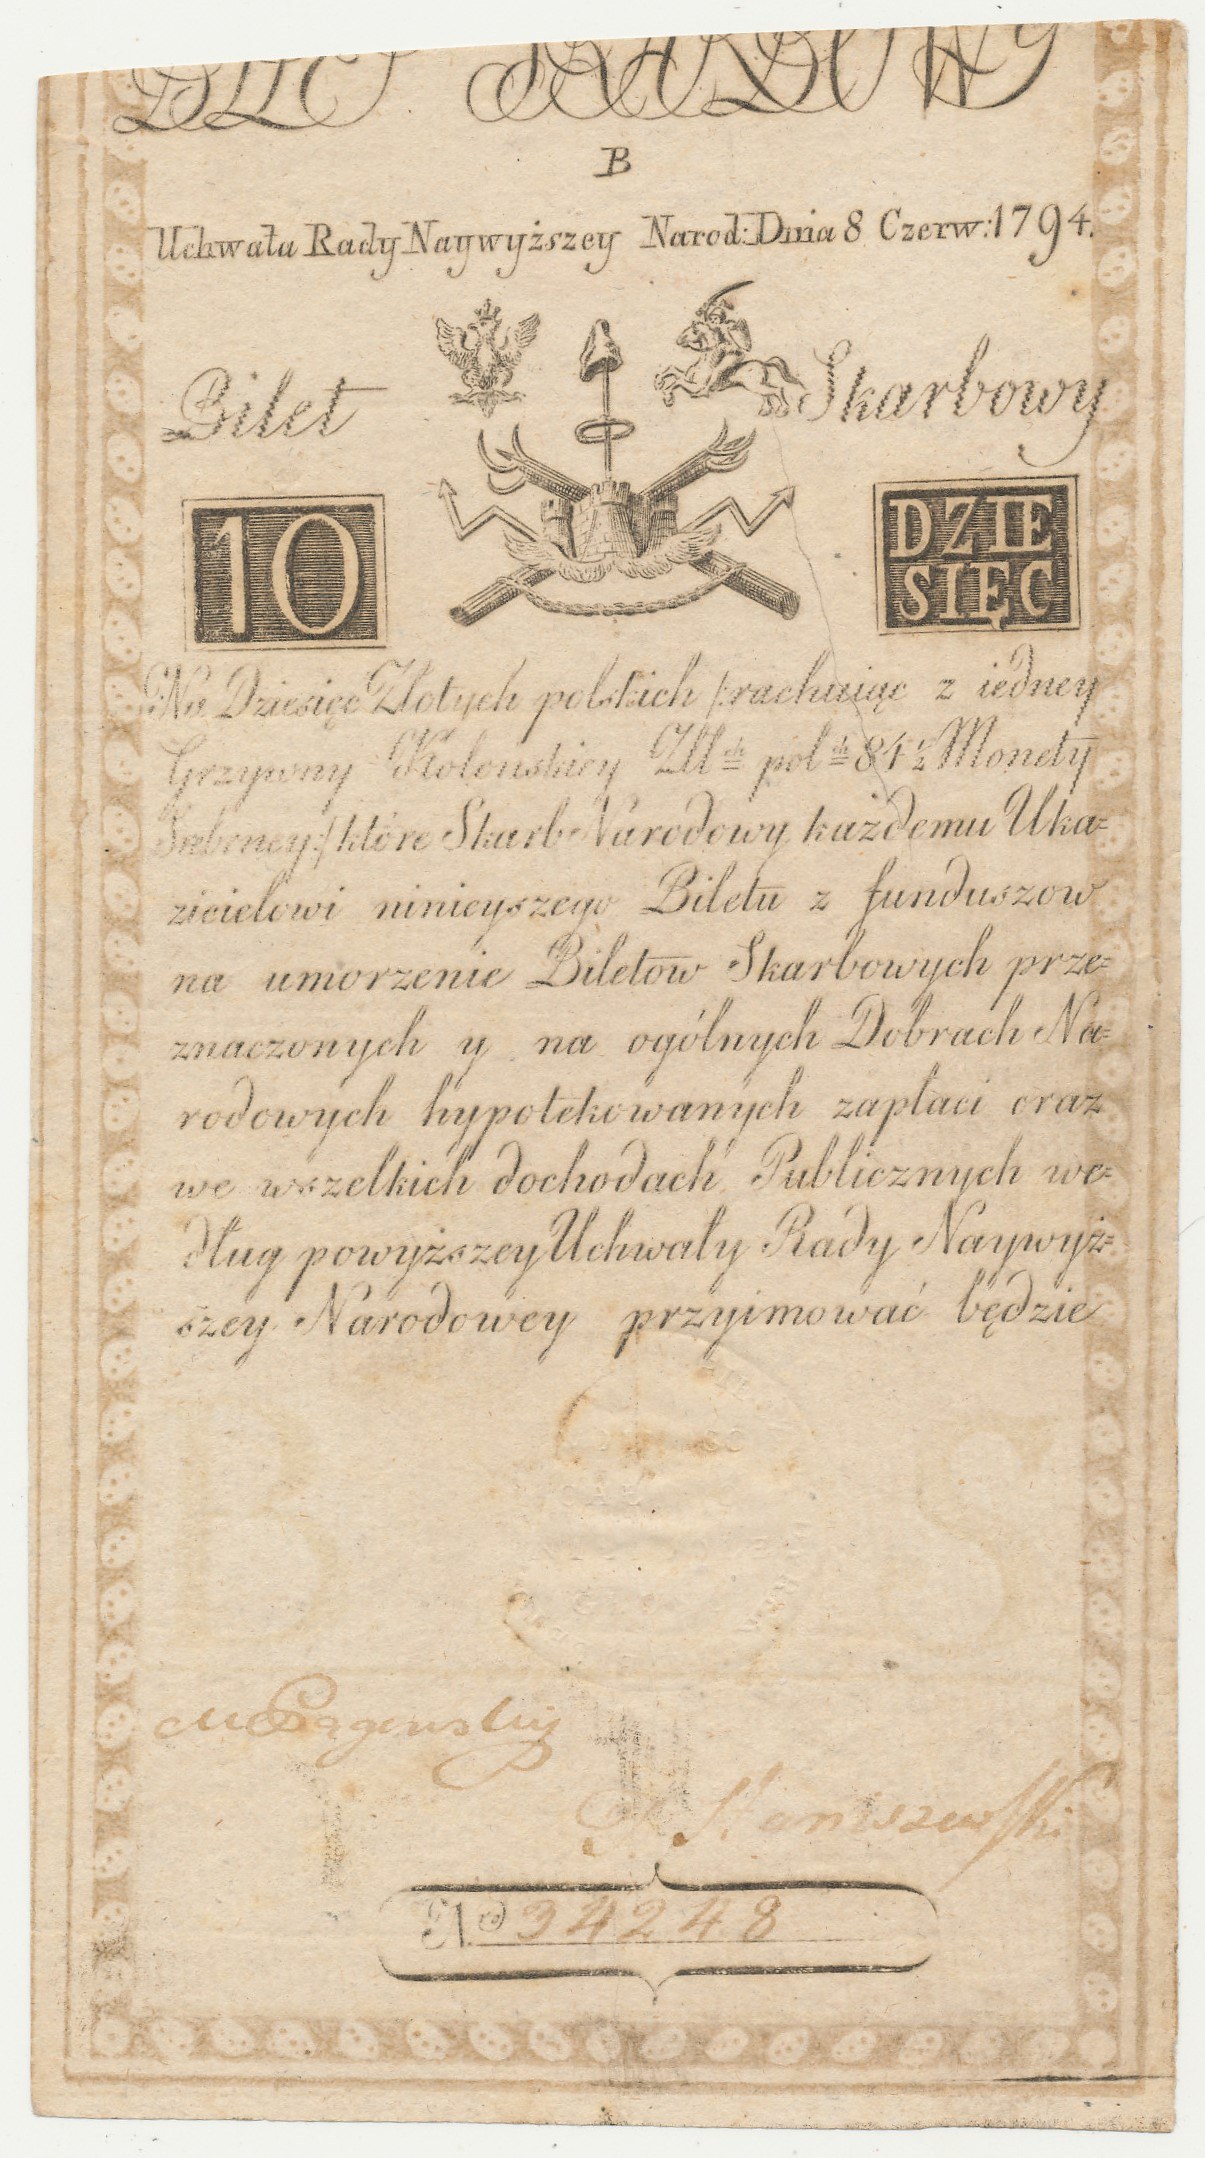 BILET SKARBOWY
B
Uchwała Rady Naywyższey Narod: Dnia 8 Czerw: 1794.
Bilet Skarbowy
10 DZIE
SIĘC
Na Dziesięć Złotych polskich /:rachuiąc z iedney
Grzywny Kolonskiey Złł ch pol ch 84 1/2 Monety
Srebrney:/ które Skarb Narodowy każdemu Uka=
zicielowi ninieyszego Biletu z funduszow
na umorzenie Biletow Skarbowych prze=
znaczonych y na ogólnych Dobrach Na=
rodowych hypotekowanych zapłaci oraz
we wszelkich dochodach Publicznych we=
dług powyższey Uchwały Rady Naywyż=
szey Narodowey przyimować będzie
Staniszewski
No 34248